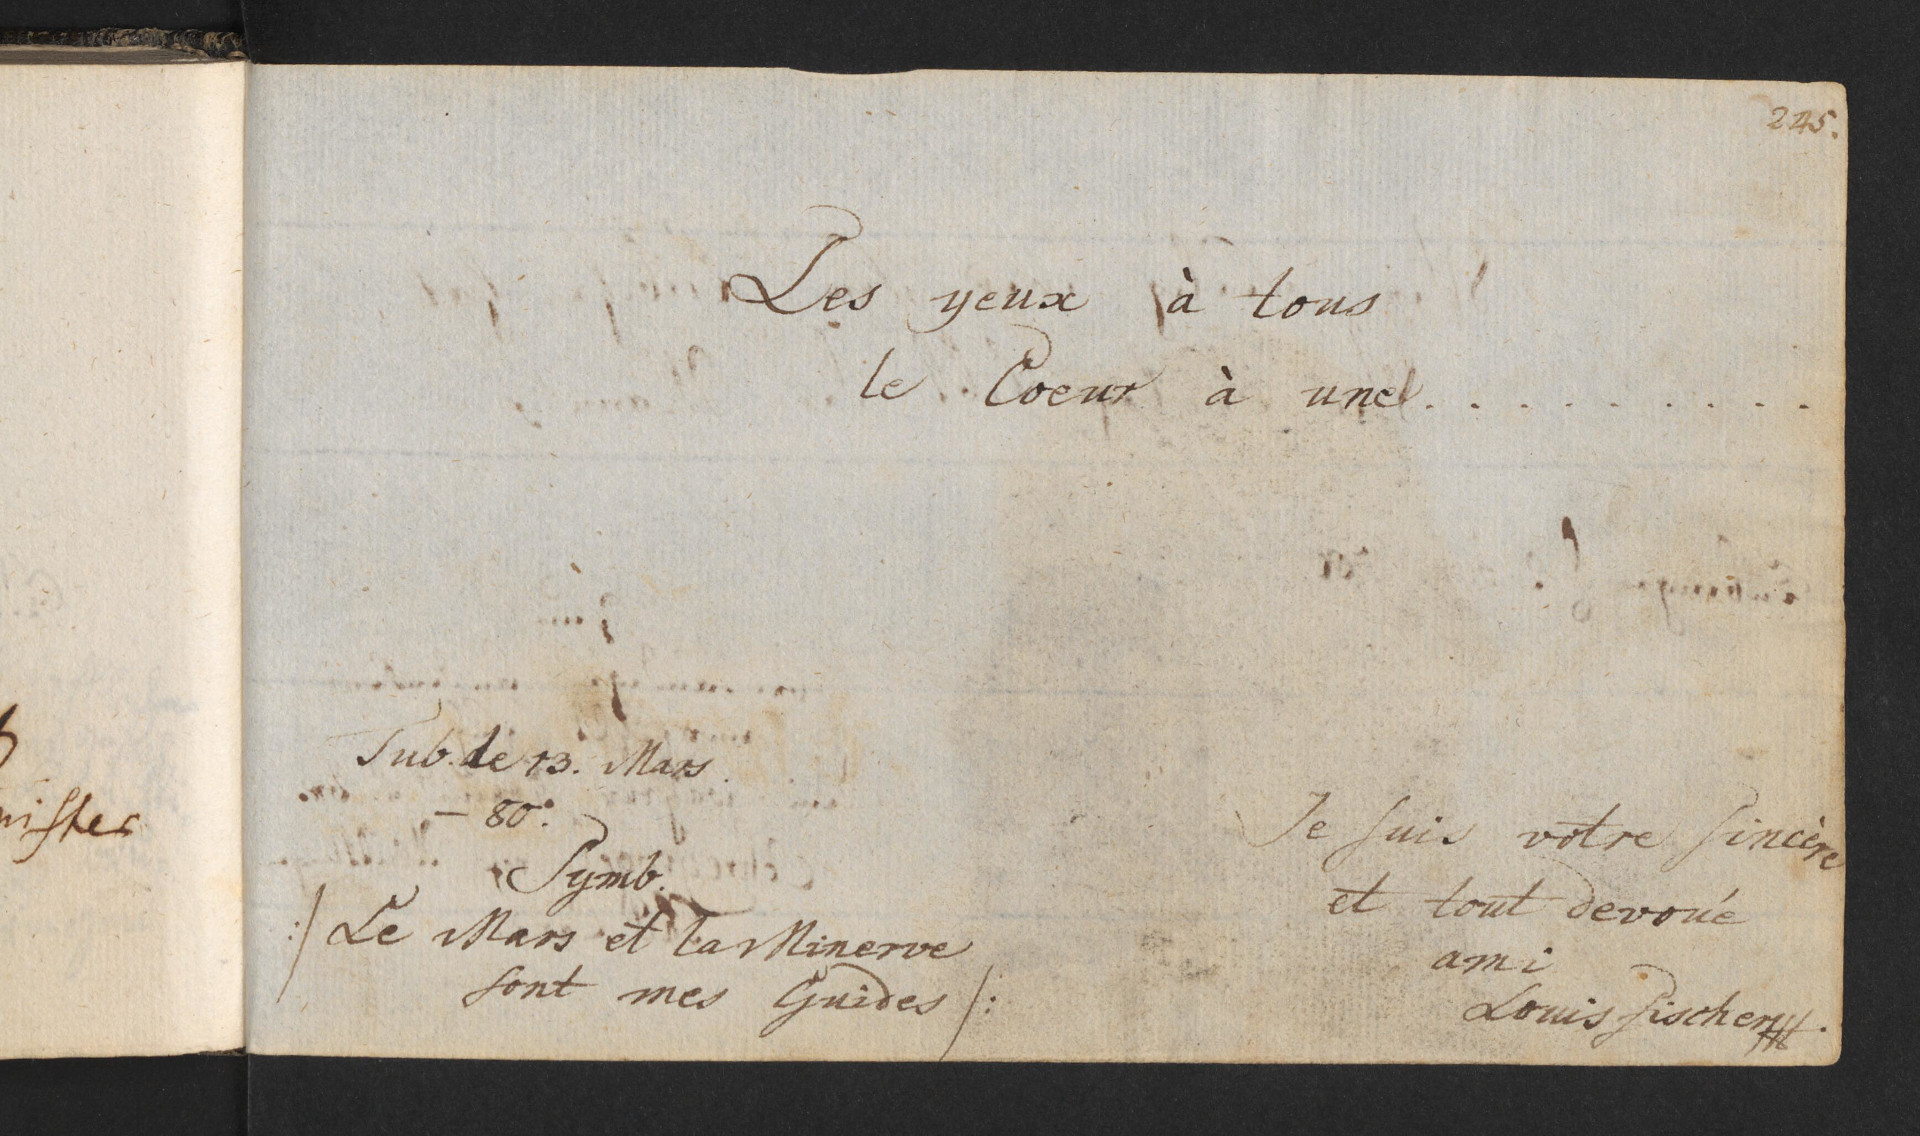 245.
Les yeux à tous
le Coeur à une . . . . . . . . .
Tub. de 13. Mars.
– 80.
Symb.
:/ Le Mars et la Minerve
sont mes Guides /:
Je suis votre sincère
et tout devoué
ami
Louis Fischer.
nister